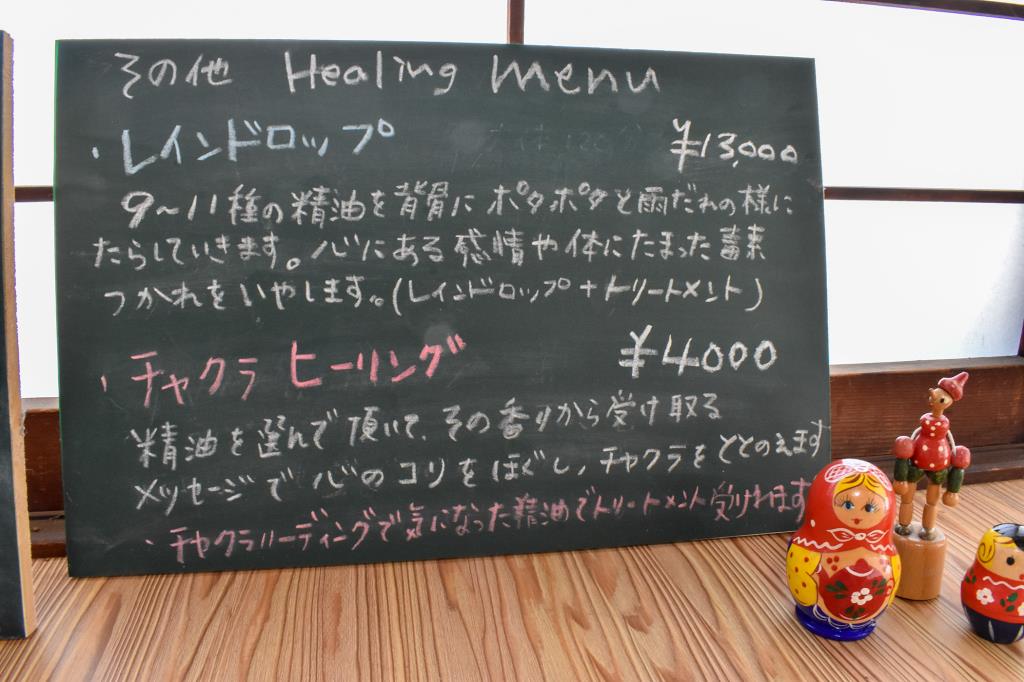 その他 Healing menu
・レインドロップ ¥13,000
9~11種の精油を背骨に ポタポタと雨だれの様に
たらしていきます。心にある感情や体にたまった毒素
つかれをいやします。(レインドロップ+トリートメント)
・チャクラ ヒーリング ¥4000
精油を選んで頂いて、その香りから受け取る
メッセージで心のコリをほぐし、チャクラをととのえます
・チャクラリーディングで気になった精油でトリートメント受けれます